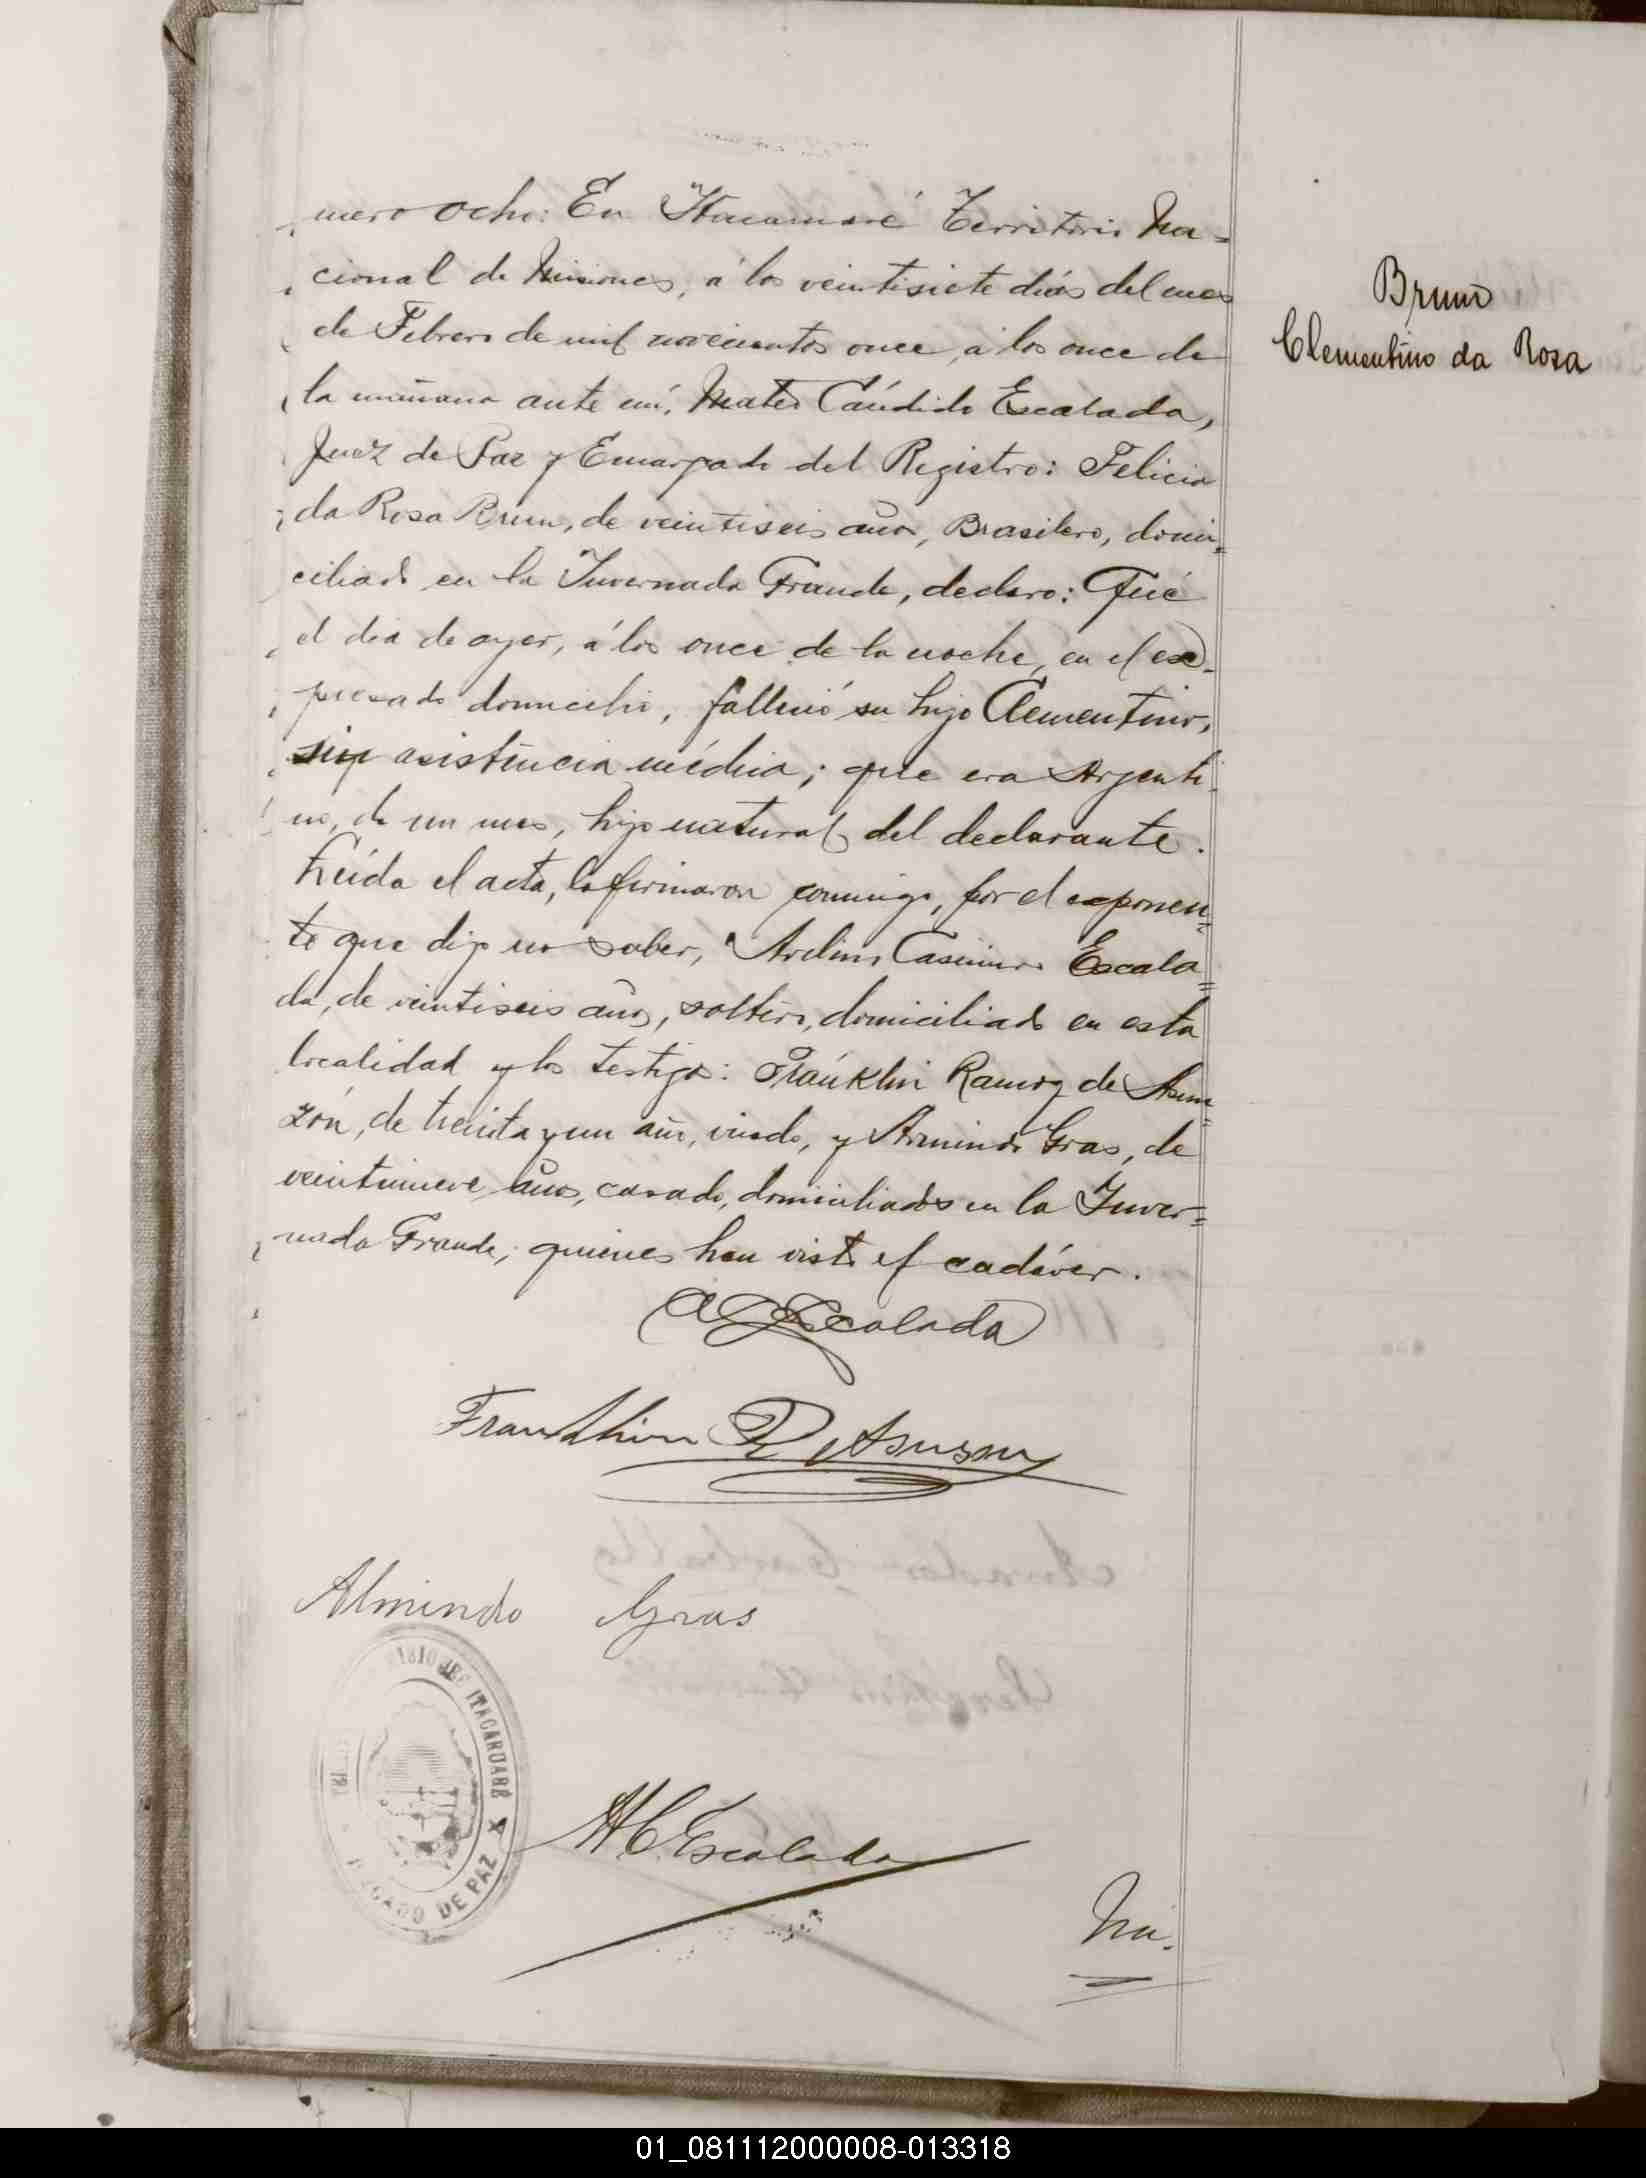 mero ocho: En Itacaruaré Territorio Na=
cional de Misiones, á los veintisiete dias del mes
de Febrero de mil novecientos once, á las once de
la mañana ante mí, Mateo Cándido Escalada,
Juez de Paz y Encargado del Registro: Felicio
da Rosa Brum, de veintiseis años, Brasilero, domi=
ciliado en la Invernada Grande, declaro: Qué
el dia de ayer, á las once de la noche, en el ex-
presado domicilio, falleció su hijo Clementino,
sin asistencia médica; que era Argenti-
no, de un mes, hijo natural del declarante.
Leída el acta, la firmaron conmigo, por el exponen=
te que dijo no saber, Casimiro Escala=
da, de veintiseis años, soltero, domiciliado en esta
localidad y los testigos: Fránklin Ramoz de Asun=
zón, de treinta y un año, viudo, y Armindo Gras, de
veintinueve años, casado, domiciliados en la Inver=
nada Grande; quienes han visto el cadáver.
Escalada
Franklin R. Asunson
Almindo Gras
ITACARUARÉ
JUZGADO DE PAZ
M C Escalada
Nú.
Brum
Clementino da Rosa
01_081112000008-013318